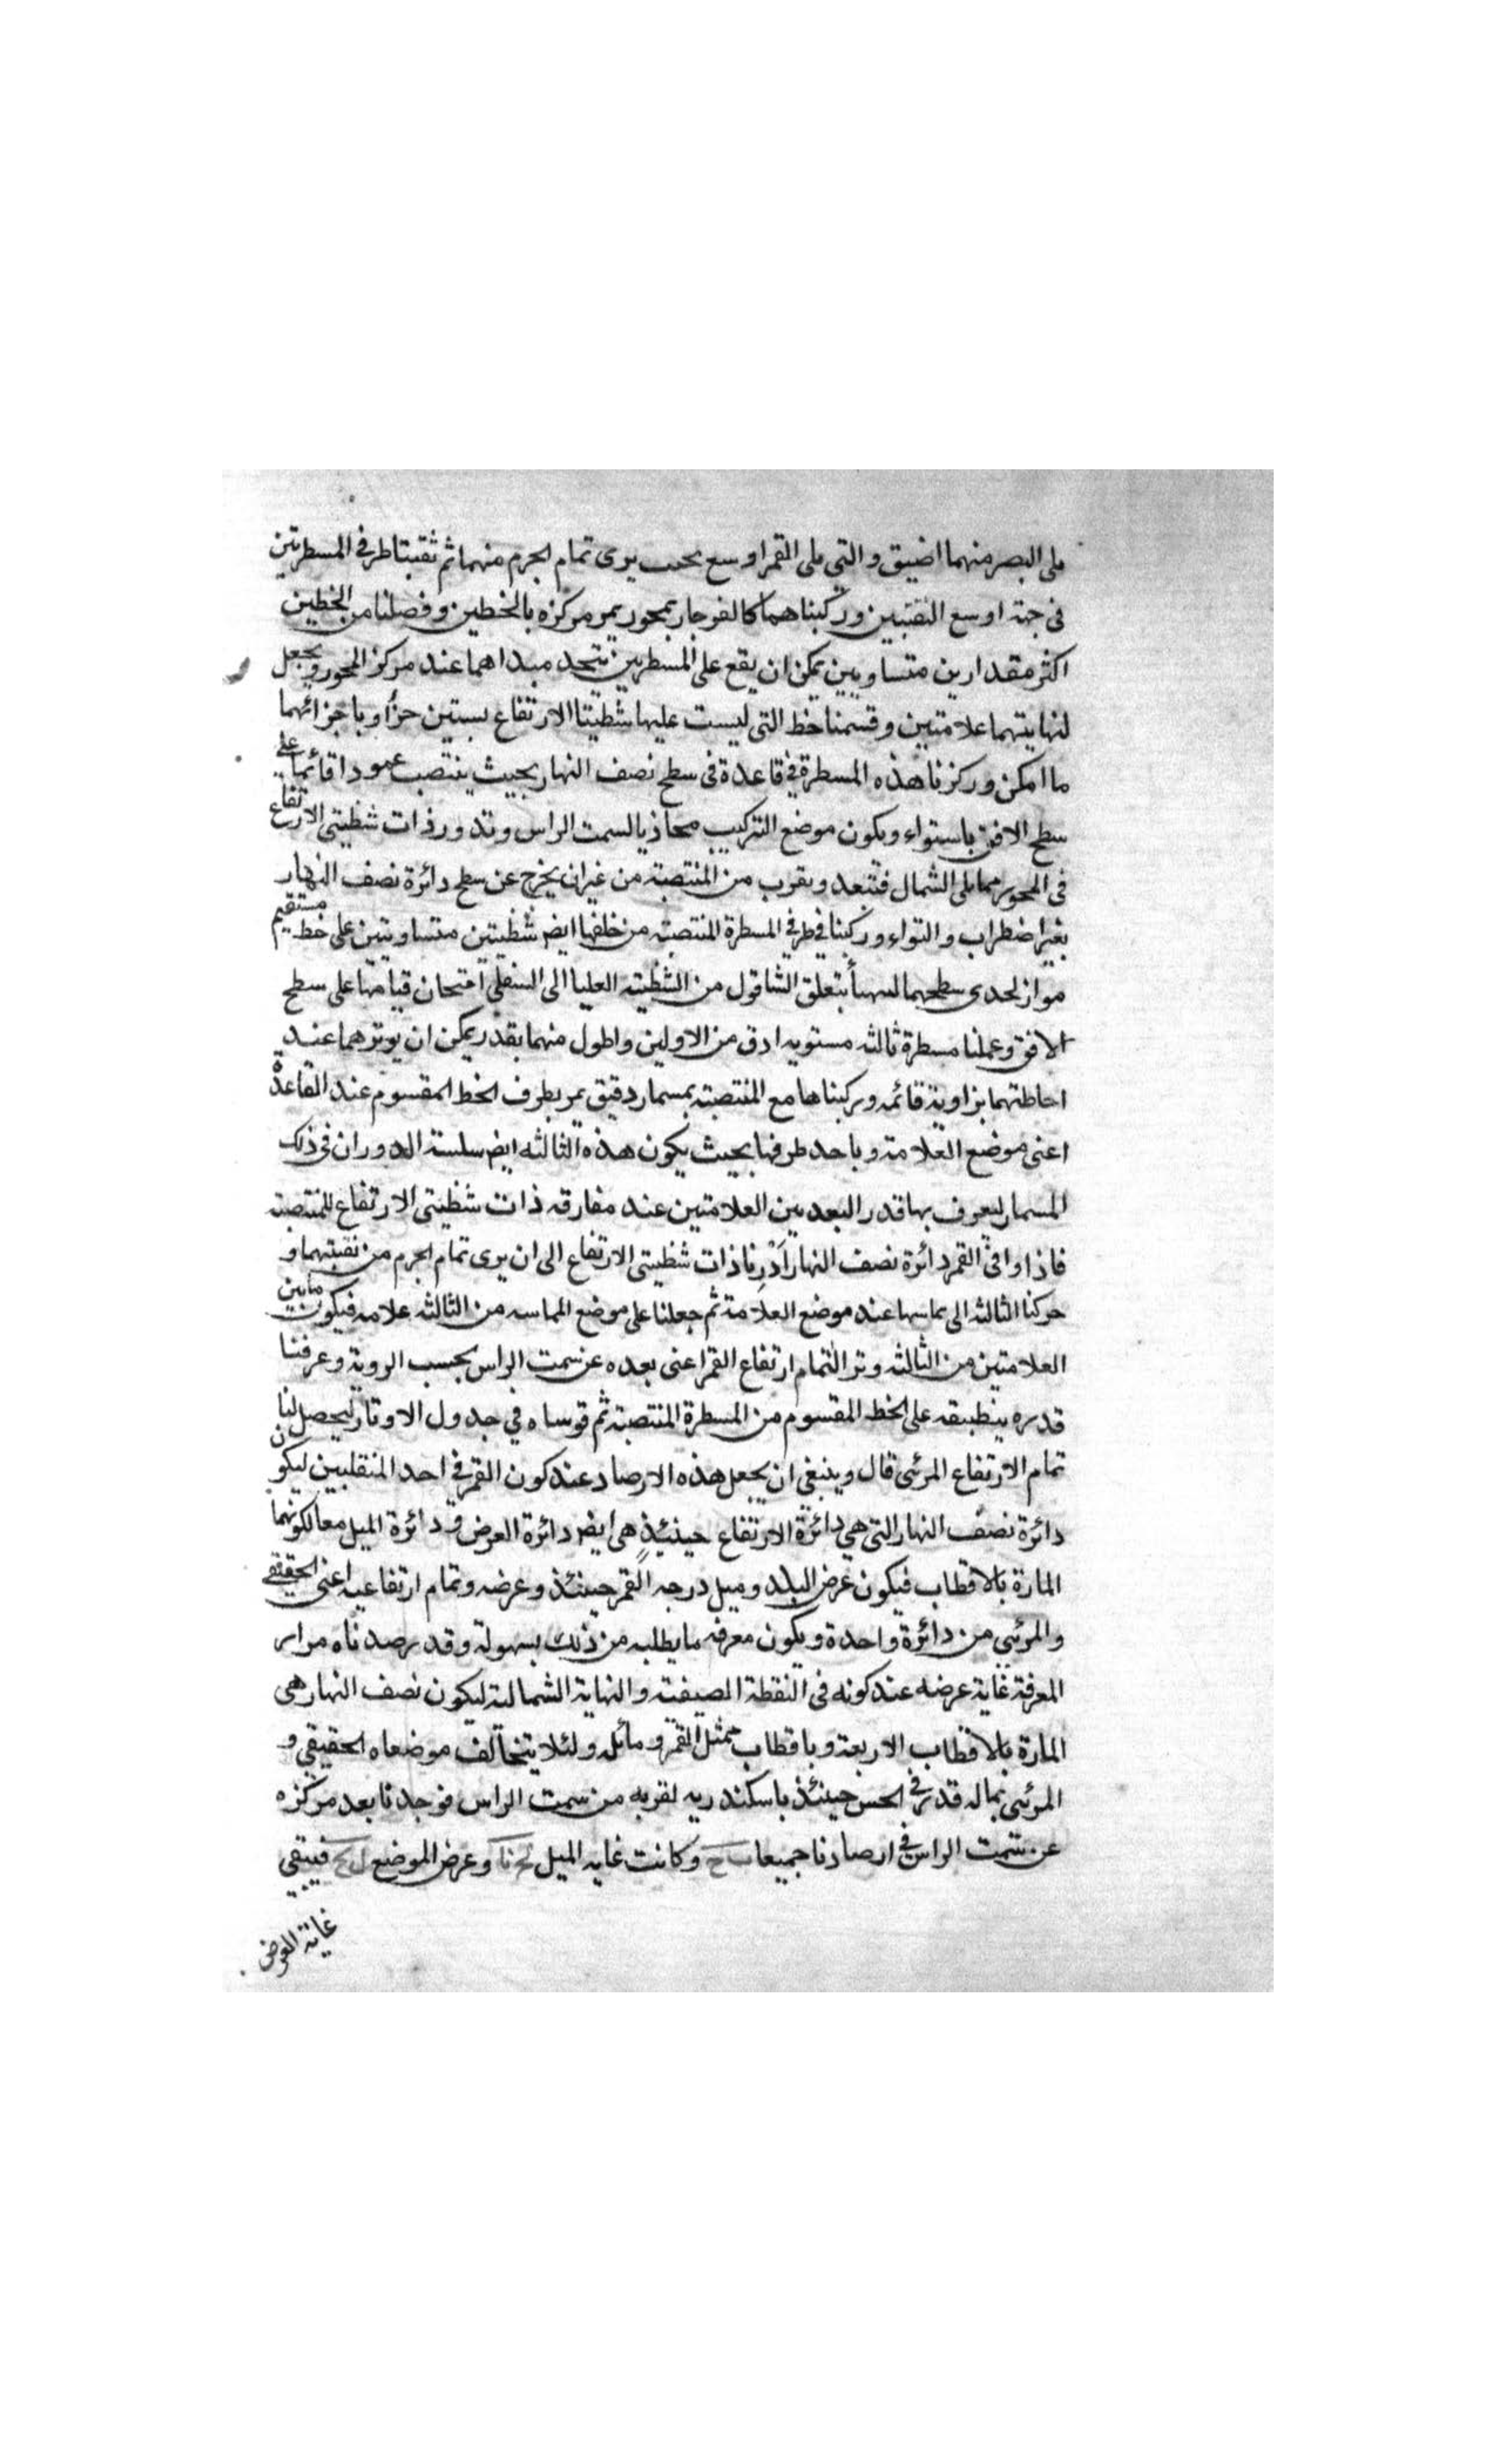 يلى البصر منهما اضيق والتى يلى القمر اوسع بحيث يرى تمام الجرم منهما ثم ثقبنا طرفى المسطرتين
فى جهة اوسع الثقبتين وركبناهما كالفرجار بمحور يمر مركزه بالخطين وفصلنا من الخطين
اكثر مقدارين متساويين يمكن ان يقع على المسطرين يتحد مبداهما عند مركز المحور ويجعل
لنهايتهما علامتين وقسمنا خط التى ليست عليها شظيتا الارتفاع بستين جزأ وباجزائهما
ما امكن وركزنا هذه المسطرة فى قاعدة فى سطح نصف النهار بحيث ينتصب عمودا قائما على
سطح الافق باستواء ويكون موضع التركيب محاذيا لسمت الراس وتدور ذات شظيتى الارتفاع
فى المحور مما يلى الشمال فتبعد ويقرب من المنتصبة من غير ان يخرج عن سطح دائرة نصف النهار
بغير اضطراب والتواء وركبنا فى طرفى المسطرة المنتصبة من خلفها ايضا شظيتين متساويتين على خط مستقيم
مواز لحدى سطحهما ليتهيأ بتعلق الشاقول من الشظية العليا الى السفلى امتحان قيامها على سطح
الافق وعملنا مسطرة ثالثه مستويه ادق من الاولين واطول منهما بقدر يمكن ان يوترهما عند
احاطتهما بزاوية قائمه وركبناها مع المنتصبة بمسمار دقيق يمر بطرف الخط المقسوم عند القاعدة
اعنى موضع العلامة وباحد طرفها بحيث يكون هذه الثالثه ايضا سلسة الدوران فى ذلك
المسمار ليعرف بها قدر البعد بين العلامتين عند مفارقه ذات شظيتى الارتفاع للمنتصبة
فاذا وافى القمر دائرة نصف النهار اَدْرنا ذات شظيتى الارتفاع الى ان يرى تمام الجرم من ثقبتهما و
حركنا الثالثه الى يماسها عند موضع العلامة ثم جعلنا على موضع المماسه من الثالثه علامه فيكون مابين
العلامتين من الثالثه وتر التمام ارتفاع القمر اعنى بعده عن سمت الراس بحسب الروية وعرفنا
قدره بتطبيقه على الخط المقسوم من المسطرة المنتصبة ثم قوسناه فى جدول الاوتار ليحصل لنا
تمام الارتفاع المرئى قال وينبغى ان يجعل هذه الارصاد عند كون القمر فى احد المنقلبين ليكون
دائرة نصف النهار التى هى دائرة الارتفاع حينئذٍ هى ايضا دائرة العرض ودائرة الميل معا لكونهما
المارة بالاقطاب فيكون عرض البلد وميل درجه القمر حينئذ وعرضه وتمام ارتفاعيه اعنى الحقيقى
والمرئى من دائرة واحدة ويكون معرفه ما يطلبه من ذلك بسهولة وقد رصدناه مرار
المعرفة غاية عرضه عند كونه فى النقطة الصيفية والنهاية الشمالية ليكون نصف النهار هى
المارة بالاقطاب الاربعة وباقطاب ممثل القمر ومائله ولئلا يتخالف موضعاه الحقيقى و
المرئى بماله قدر فى الحس حينئذ باسكندريه لقربه من سمت الراس فوجدنا بعد مركزه
عن سمت الراس فى ارصادنا جميعا ب ح وكانت غايه الميل كح نا وعرض الموضع ل نح فيبقى
غاية العرض